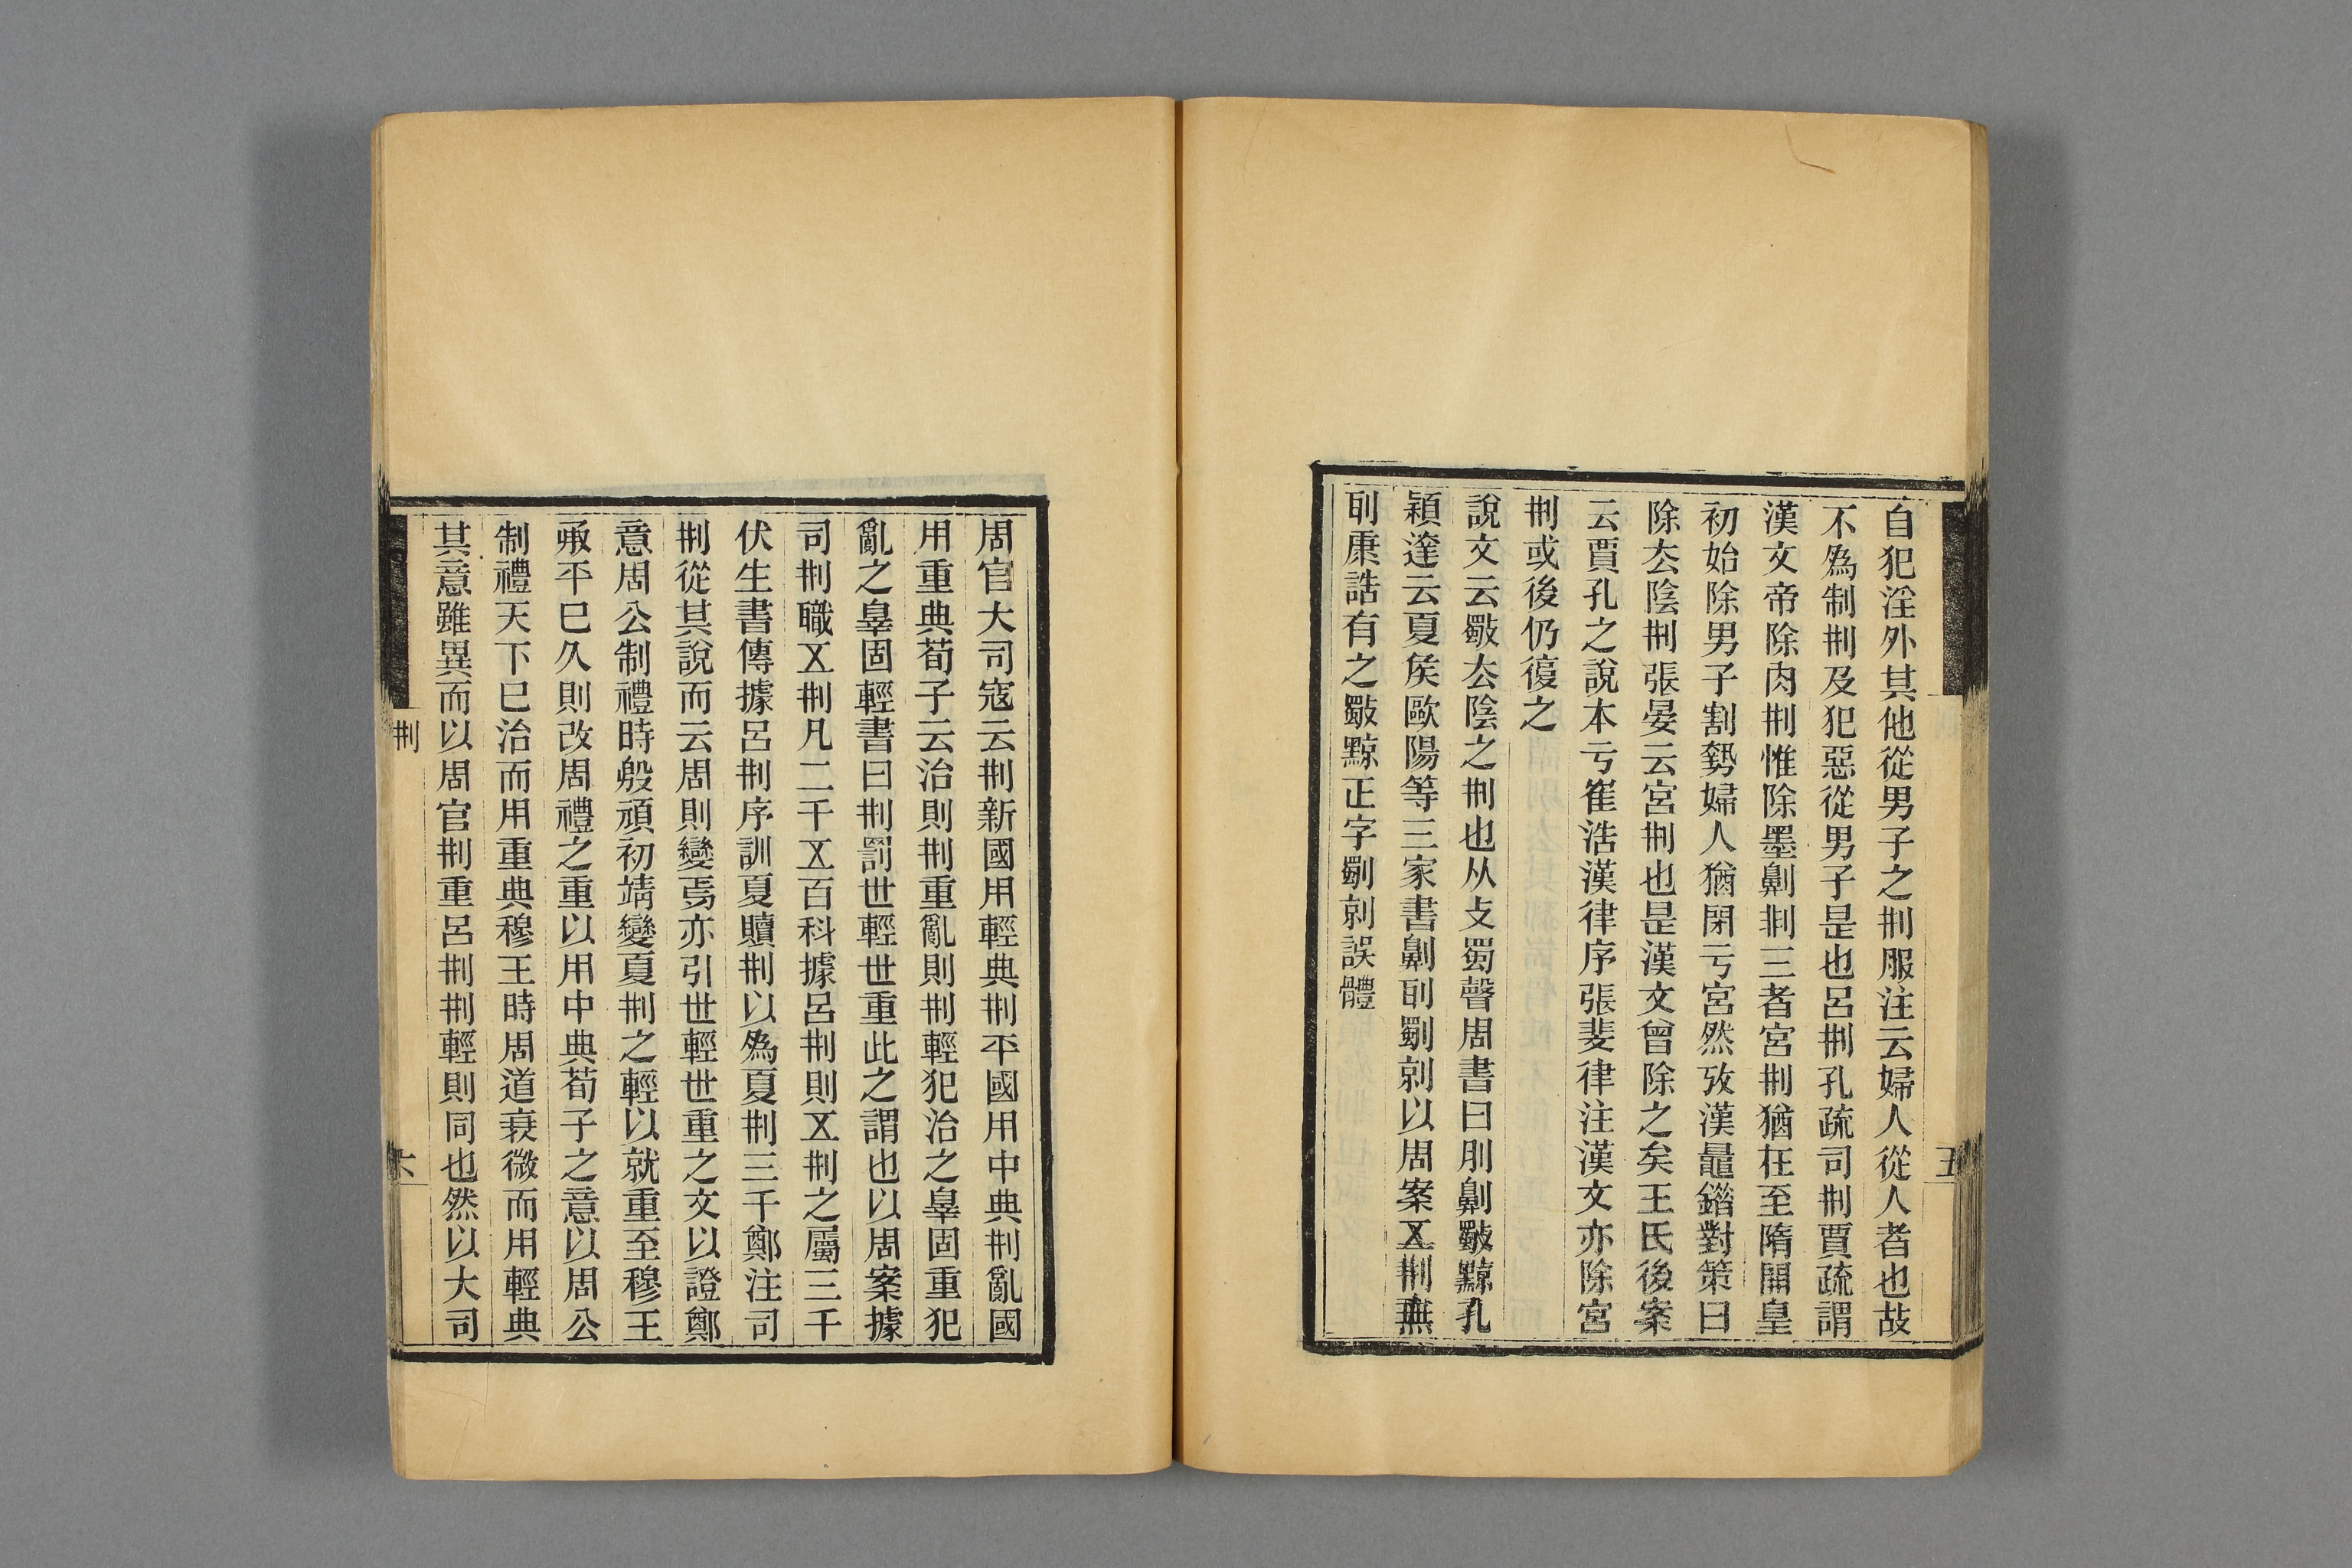 自犯淫外其他從男子之㓝服注云婦人從人者也故
不爲制㓝及犯惡從男子是也呂㓝孔疏司㓝賈疏謂
漢文帝除肉㓝惟除墨劓剕三者宮㓝猶在至隋開皇
初始除男子割勢婦人猶閉亏宮然攷漢鼂錯對策曰
除厺陰㓝張晏云宮㓝也是漢文曾除之矣王氏後案
云賈孔之說本亏崔浩漢律序張斐律注漢文亦除宮
㓝或後仍復之
說文云斀厺陰之㓝也从攴蜀聲周書曰刖劓斀黥孔
穎達云夏矦歐陽等三家書劓刵劅剠以周案㐅㓝無
刵康誥有之斀黥正字劅剠誤體
五
周官大司寇云㓝新國用輕典㓝平國用中典㓝亂國
用重典荀子云治則㓝重亂則㓝輕犯治之辠固重犯
亂之辠固輕書曰㓝罰世輕世重此之謂也以周案據
司㓝職㐅㓝凡二千㐅百科據呂㓝則㐅㓝之屬三千
伏生書傳據呂㓝序訓夏贖㓝以爲夏㓝三千鄭注司
㓝從其說而云周則變焉亦引世輕世重之文以證鄭
意周公制禮時殷頑初靖變夏㓝之輕以就重至穆王
承平巳久則改周禮之重以用中典荀子之意以周公
制禮天下巳治而用重典穆王時周道衰微而用輕典
其意雖異而以周官㓝重呂㓝㓝輕則同也然以大司
㓝
六